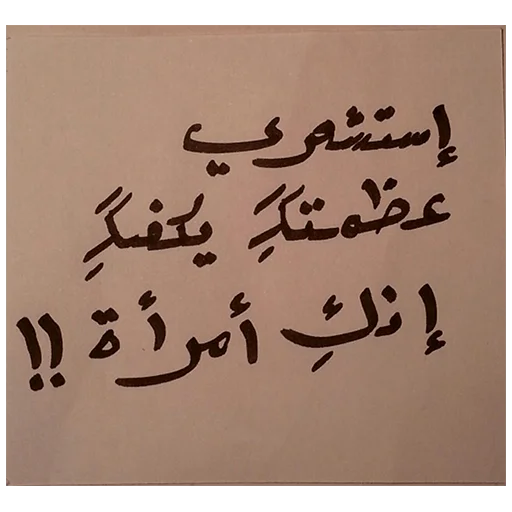 إستشعري
عظمتكِ يكفيكِ
إنكِ أمرأة !!